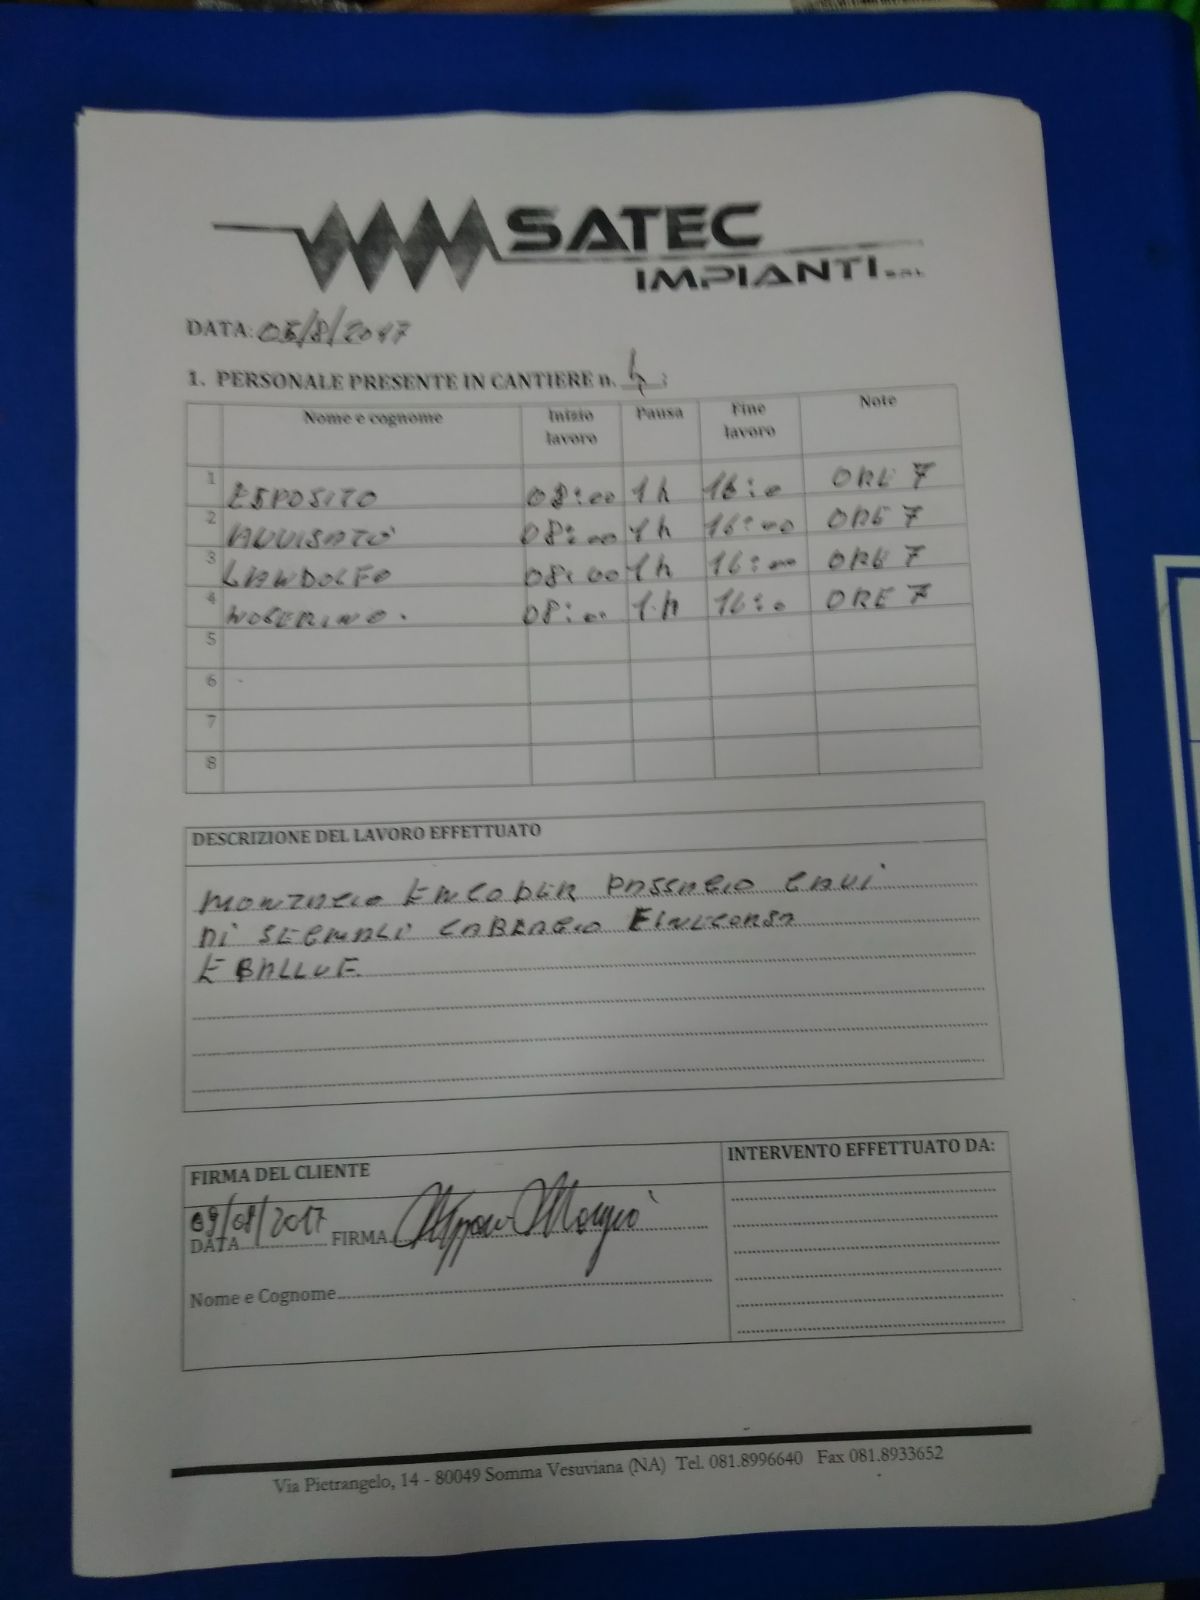 SATEC
IMPIANTI S.R.L.
DATA: 05/8/2017
1. PERSONALE PRESENTE IN CANTIERE n. 4 :
Nome e cognome Inizio lavoro Pausa Fine lavoro Note
1 ESPOSITO 08:00 1h 16:0 ORE 7
2 AUUISATO 08:00 1h 16:00 ORE 7
3 LANDOLFO 08:00 1h 16:00 ORE 7
4 NOCERINO. 08:00 1.h 16:0 ORE 7
5
6
7
8
DESCRIZIONE DEL LAVORO EFFETTUATO
MONTAGIO ENCODER PASSAGIO CAVI
DI SEGNALI CABLAGIO FINECORSA
E BALLUF
FIRMA DEL CLIENTE INTERVENTO EFFETTUATO DA:
09/08/2017
DATA FIRMA
Nome e Cognome
Via Pietrangelo, 14 - 80049 Somma Vesuviana (NA) Tel. 081.8996640 Fax 081.8933652